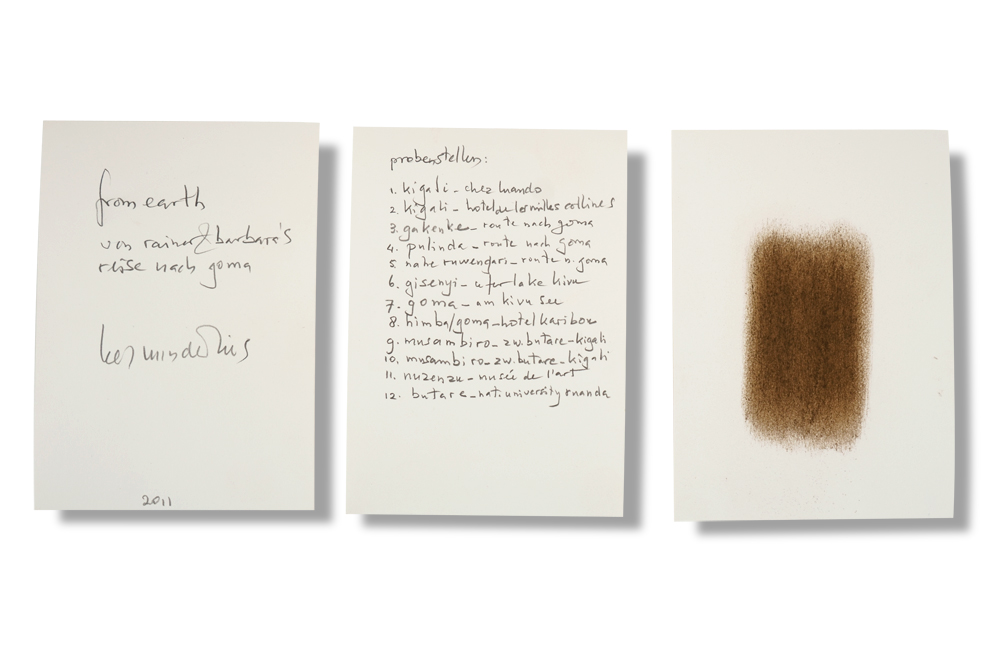 from earth
von rainer & barbara's
reise nach goma
2011
probenstellen:
1. kigali - chez lando
2. kigali - hotel de les milles collines
3. gakenke - route nach goma
4. pulinda - route nach goma
5. nahe ruwengeri - route n. goma
6. gisenyi - ufer lake kivu
7. goma - am kivu see
8. himba/goma - hotel karibou
9. musambiro - zw. butare - kigali
10. musambiro - zw. butare - kigali
11. nuzenzu - musée de l'art
12. butare - nat. university rwanda